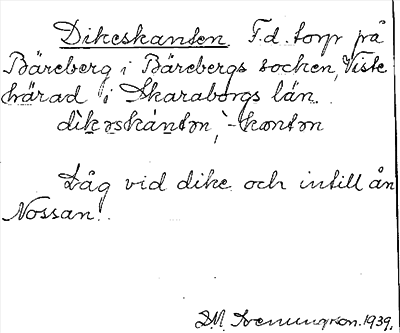 Dikeskanten F.d. torp på
Bäreberg i Bärebergs socken, Viste
härad i Skaraborgs län.
dìkəskántən, -kantən
Låg vid dike och intill ån
Nossan.
D.M. 1939.